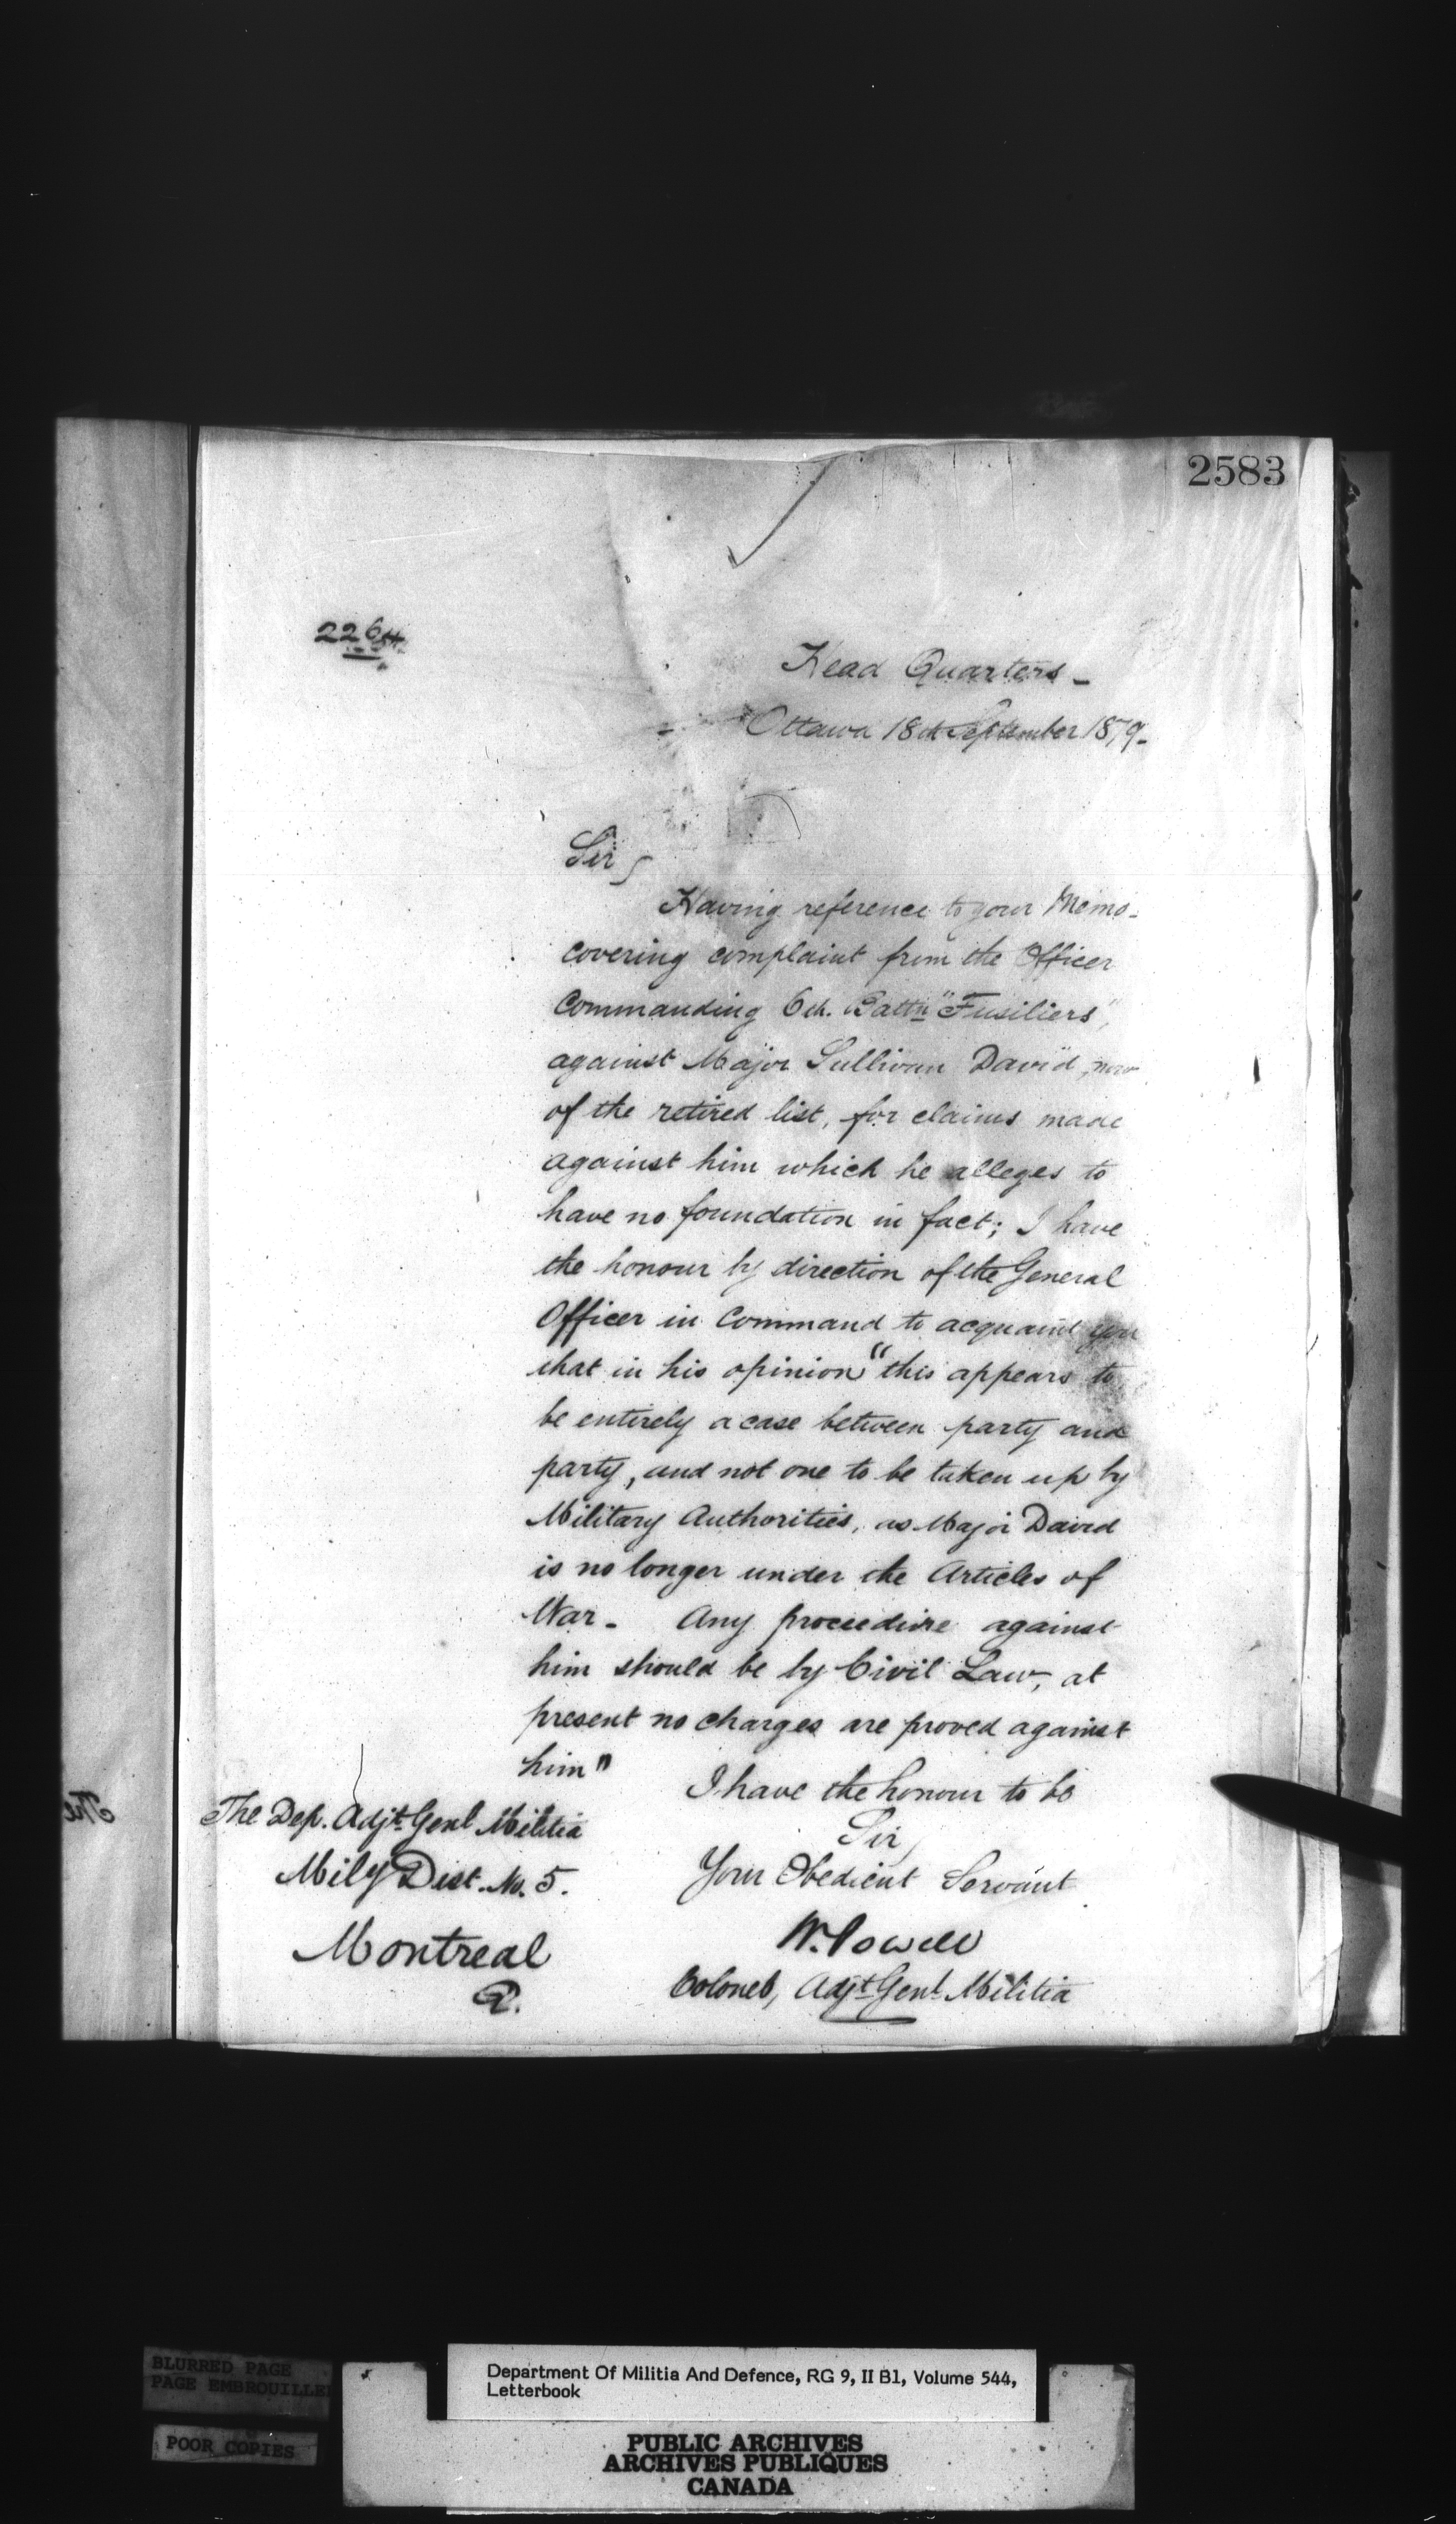 2583
2264
Head Quarters -
Ottawa 18th September 1879 -
Sir,
Having reference to your Memo-
covering complaint from the Officer
Commanding 6th. Battn "Fusiliers",
against Major Sullivan David, now
of the retired list, for claims made
against him which he alleges to
have no foundation in fact; I have
the honour by direction of the General
Officer in Command to acquaint you
that in his opinion "this appears to
be entirely a case between party and
party, and not one to be taken up by
Military Authorities, as Major David
is no longer under the Articles of
War - Any procedure against
him should be by Civil Law, at
present no charges are proved against
him"
I have the honour to be
Sir,
Your Obedient Servant
W. Powell
Colonel, Adjt Genl Militia
The Dep. Adjt Genl Militia
Mily Dist. No. 5.
Montreal
Q.
The
BLURRED PAGE
PAGE EMBROUILLEE
POOR COPIES
Department Of Militia And Defence, RG 9, II B1, Volume 544,
Letterbook
PUBLIC ARCHIVES
ARCHIVES PUBLIQUES
CANADA